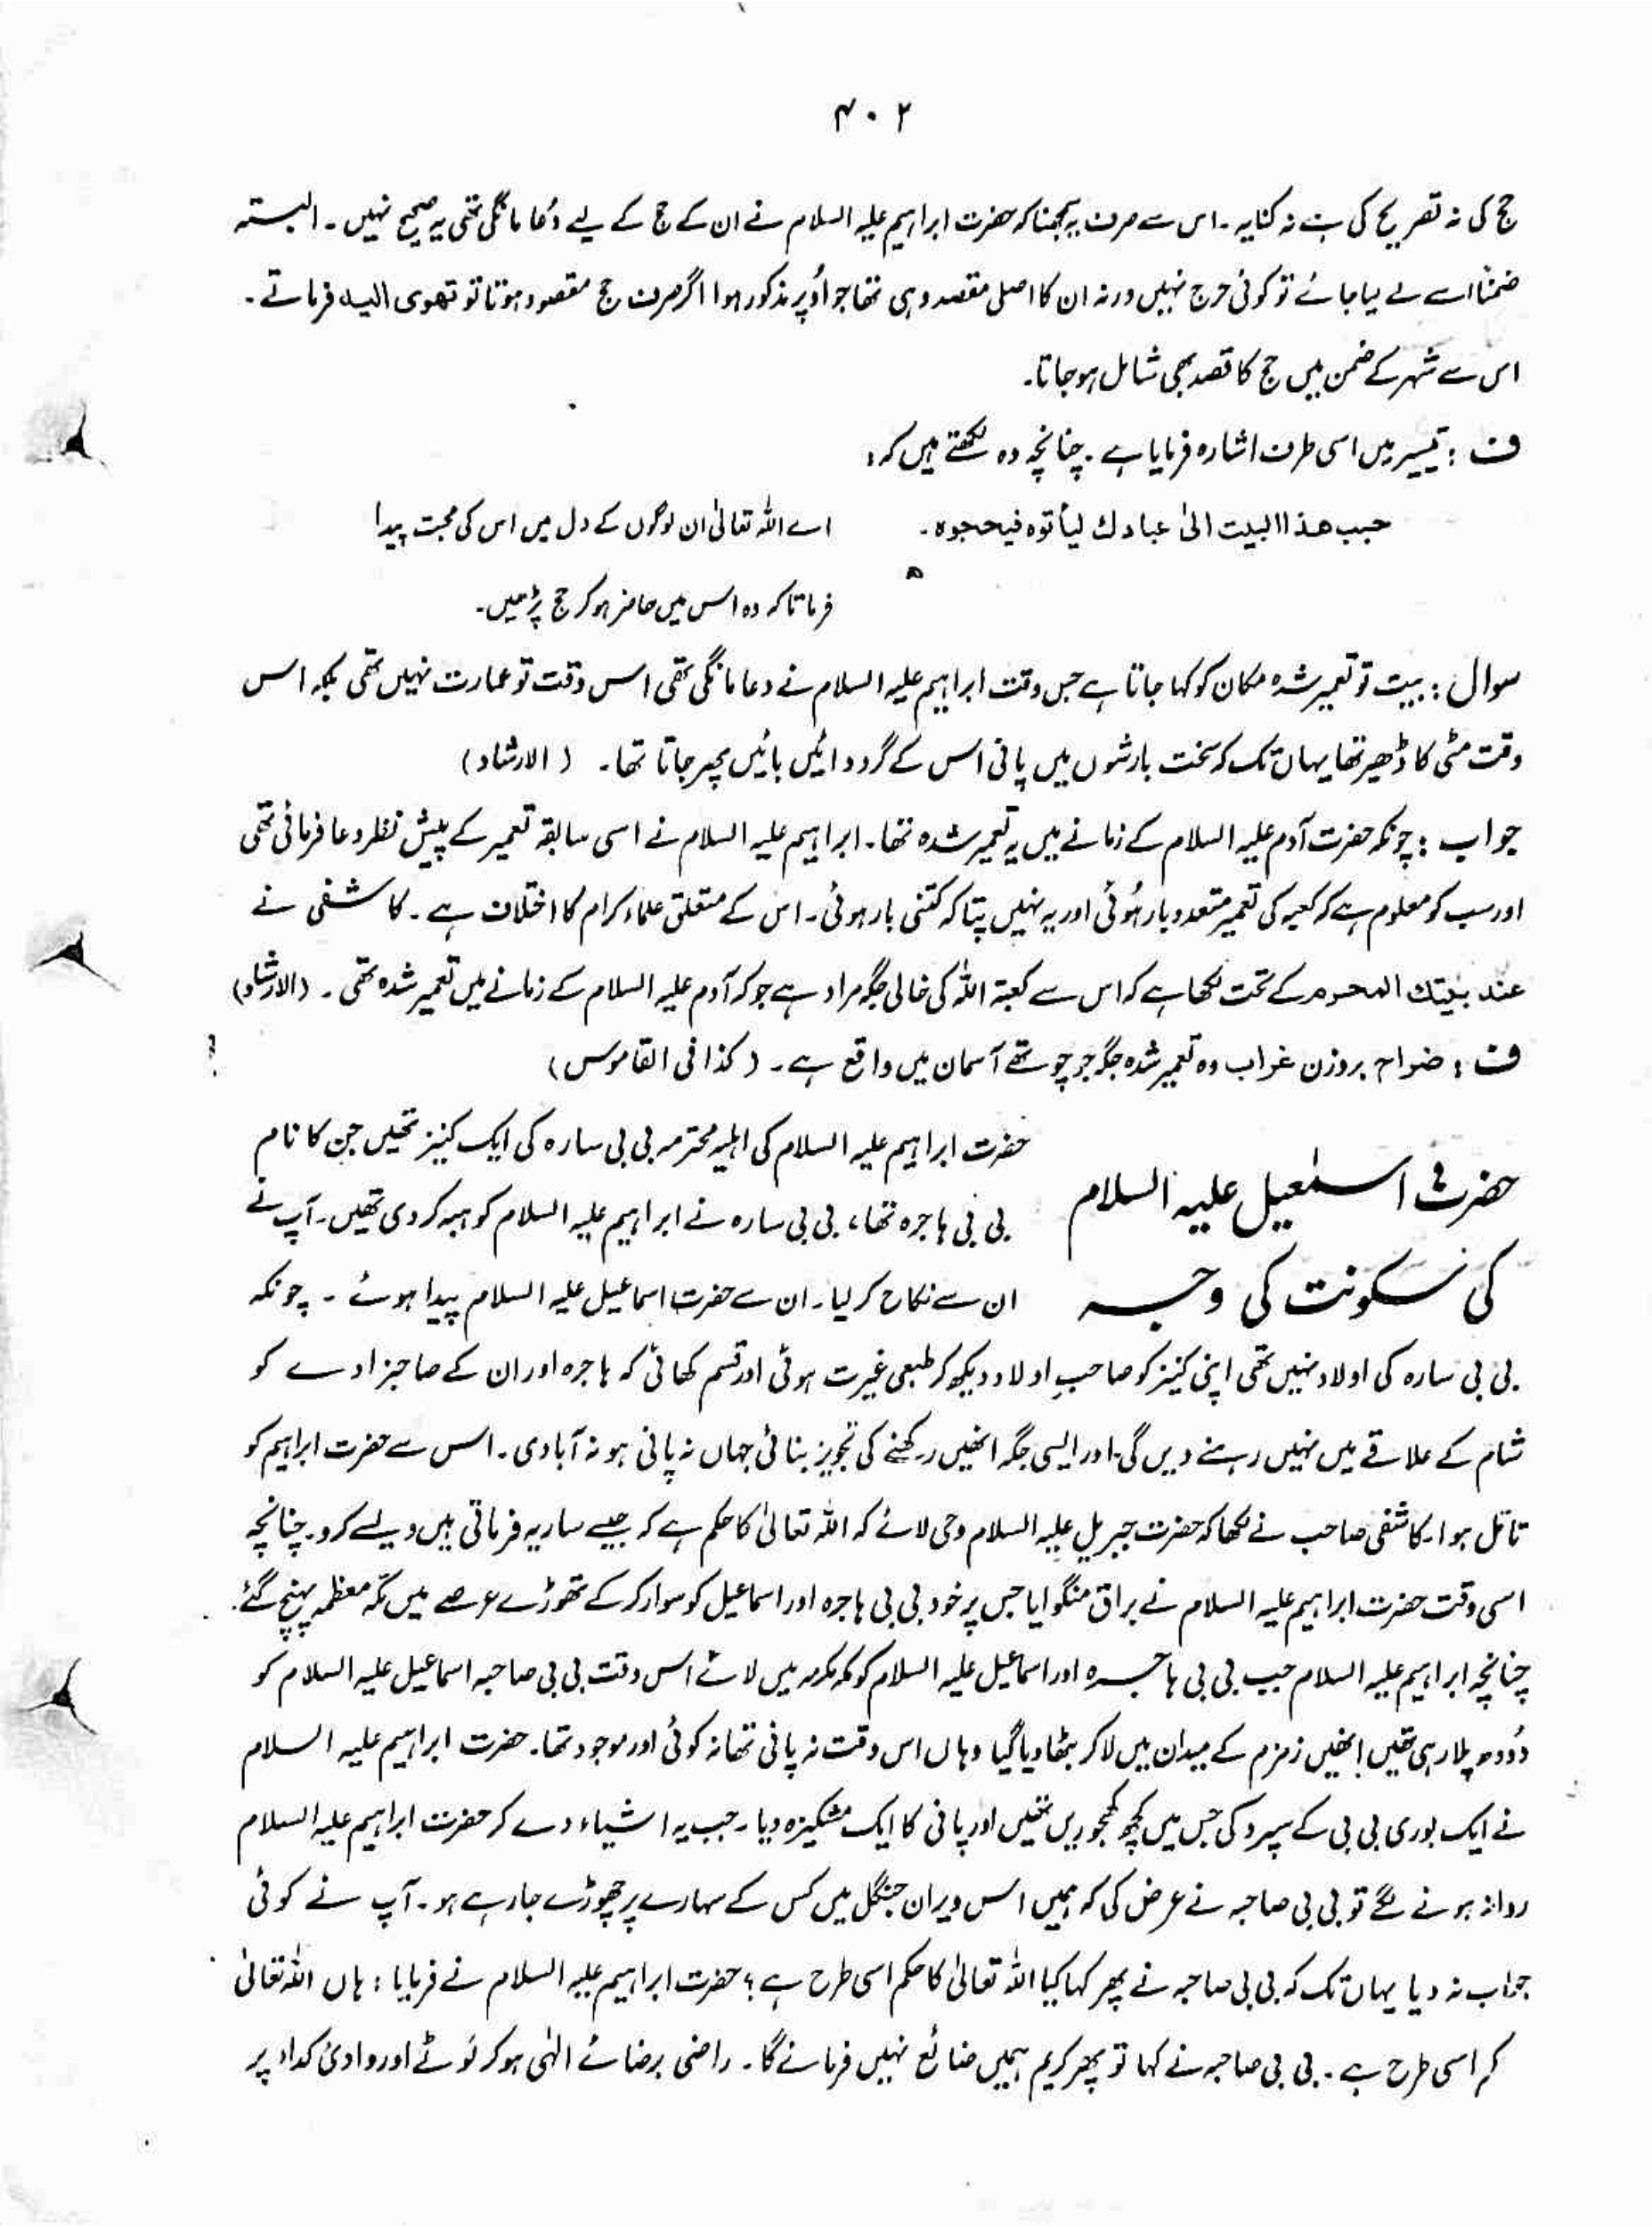 ۴۰۲
حج کی نہ تصریح کی ہے نہ کنایہ ۔ اس سے صرف یہ سمجھنا کہ حضرت ابراہیم علیہ السلام نے ان کے حج کے لیے دُعا مانگی تھی یہ صحیح نہیں ۔ البتہ
ضمنًا اسے لے لیا جائے تو کوئی حرج نہیں ورنہ ان کا اصلی مقصد وہی تھا جو اُوپر مذکور ہوا اگر صرف حج مقصود ہوتا تو تھوی الیہ فرماتے ۔
اس سے شہر کے ضمن میں حج کا قصد بھی شامل ہو جاتا۔
ف : تیسیر میں اسی طرف اشارہ فرمایا ہے ۔ چنانچہ وہ لکھتے ہیں کہ :
حبب هذا البيت الىٰ عبادك ليأتوه فيحجوه ۔
اے اللہ تعالیٰ ان لوگوں کے دل میں اس کی محبت پیدا
فرما تاکہ وہ اس میں حاضر ہو کر حج پڑھیں ۔
سوال : بیت تو تعمیر شدہ مکان کو کہا جاتا ہے جس وقت ابراہیم علیہ السلام نے دعا مانگی تھی اس وقت تو عمارت نہیں تھی بلکہ اس
وقت مٹی کا ڈھیر تھا یہاں تک کہ سخت بارشوں میں پانی اس کے گرد دائیں بائیں پھر جاتا تھا ۔ (الارشاد)
جواب : چونکہ حضرت آدم علیہ السلام کے زمانے میں یہ تعمیر شدہ تھا ۔ ابراہیم علیہ السلام نے اسی سابقہ تعمیر کے پیش نظر دعا فرمائی تھی
اور سب کو معلوم ہے کہ کعبہ کی تعمیر متعدد بار ہُوئی اور یہ نہیں پتا کہ کتنی بار ہوئی ۔ اس کے متعلق علماء کرام کا اختلاف ہے ۔ کاشفی نے
عند بیتك المحرم کے تحت لکھا ہے کہ اس سے کعبۃ اللہ کی خالی جگہ مراد ہے جو کہ آدم علیہ السلام کے زمانے میں تعمیر شدہ تھی ۔ (الارشاد)
ف : ضراح بروزن غراب وہ تعمیر شدہ جگہ جو چوتھے آسمان میں واقع ہے ۔ (کذا فی القاموس)
حضرت اسمٰعیل علیہ السلام
کی سکونت کی وجہ
حضرت ابراہیم علیہ السلام کی اہلیہ محترمہ بی بی سارہ کی ایک کنیز تھیں جن کا نام
بی بی ہاجرہ تھا ، بی بی سارہ نے ابراہیم علیہ السلام کو ہبہ کر دی تھیں ۔ آپ نے
ان سے نکاح کر لیا ۔ ان سے حضرت اسماعیل علیہ السلام پیدا ہوئے ۔ چونکہ
بی بی سارہ کی اولاد نہیں تھی اپنی کنیز کو صاحبِ اولاد دیکھ کر طبعی غیرت ہوئی اور قسم کھائی کہ ہاجرہ اور ان کے صاحبزادے کو
شام کے علاقے میں نہیں رہنے دیں گی ۔ اور ایسی جگہ انھیں رکھنے کی تجویز بنائی جہاں نہ پانی ہو نہ آبادی ۔ اس سے حضرت ابراہیم کو
تامّل ہوا ۔ کاشفی صاحب نے لکھا کہ حضرت جبریل علیہ السلام وحی لائے کہ اللہ تعالیٰ کا حکم ہے کہ جیسے ساریہ فرماتی ہیں ویسے کرو ۔ چنانچہ
اسی وقت حضرت ابراہیم علیہ السلام نے براق منگوایا جس پر خود بی بی ہاجرہ اور اسماعیل کو سوار کر کے تھوڑے عرصے میں مکّہ معظمہ پہنچ گئے ۔
چنانچہ ابراہیم علیہ السلام جب بی بی ہاجرہ اور اسماعیل علیہ السلام کو مکہ مکرمہ میں لائے اس وقت بی بی صاحبہ اسماعیل علیہ السلام کو
دُودھ پلا رہی تھیں انھیں زمزم کے میدان میں لا کر بٹھا دیا گیا وہاں اس وقت نہ پانی تھا نہ کوئی اور موجود تھا ۔ حضرت ابراہیم علیہ السلام
نے ایک بوری بی بی کے سپرد کی جس میں کچھ کھجوریں تھیں اور پانی کا ایک مشکیزہ دیا ۔ جب یہ اشیاء دے کر حضرت ابراہیم علیہ السلام
روانہ ہونے لگے تو بی بی صاحبہ نے عرض کی کہ ہمیں اس ویران جنگل میں کس کے سہارے پر چھوڑے جا رہے ہو ۔ آپ نے کوئی
جواب نہ دیا یہاں تک کہ بی بی صاحبہ نے پھر کہا کیا اللہ تعالیٰ کا حکم اسی طرح ہے ؟ حضرت ابراہیم علیہ السلام نے فرمایا : ہاں اللہ تعالیٰ
کہ اسی طرح ہے ۔ بی بی صاحبہ نے کہا تو پھر کریم ہمیں ضائع نہیں فرمائے گا ۔ راضی برضائے الٰہی ہو کر لَوٹے اور وادیٔ کداء پر